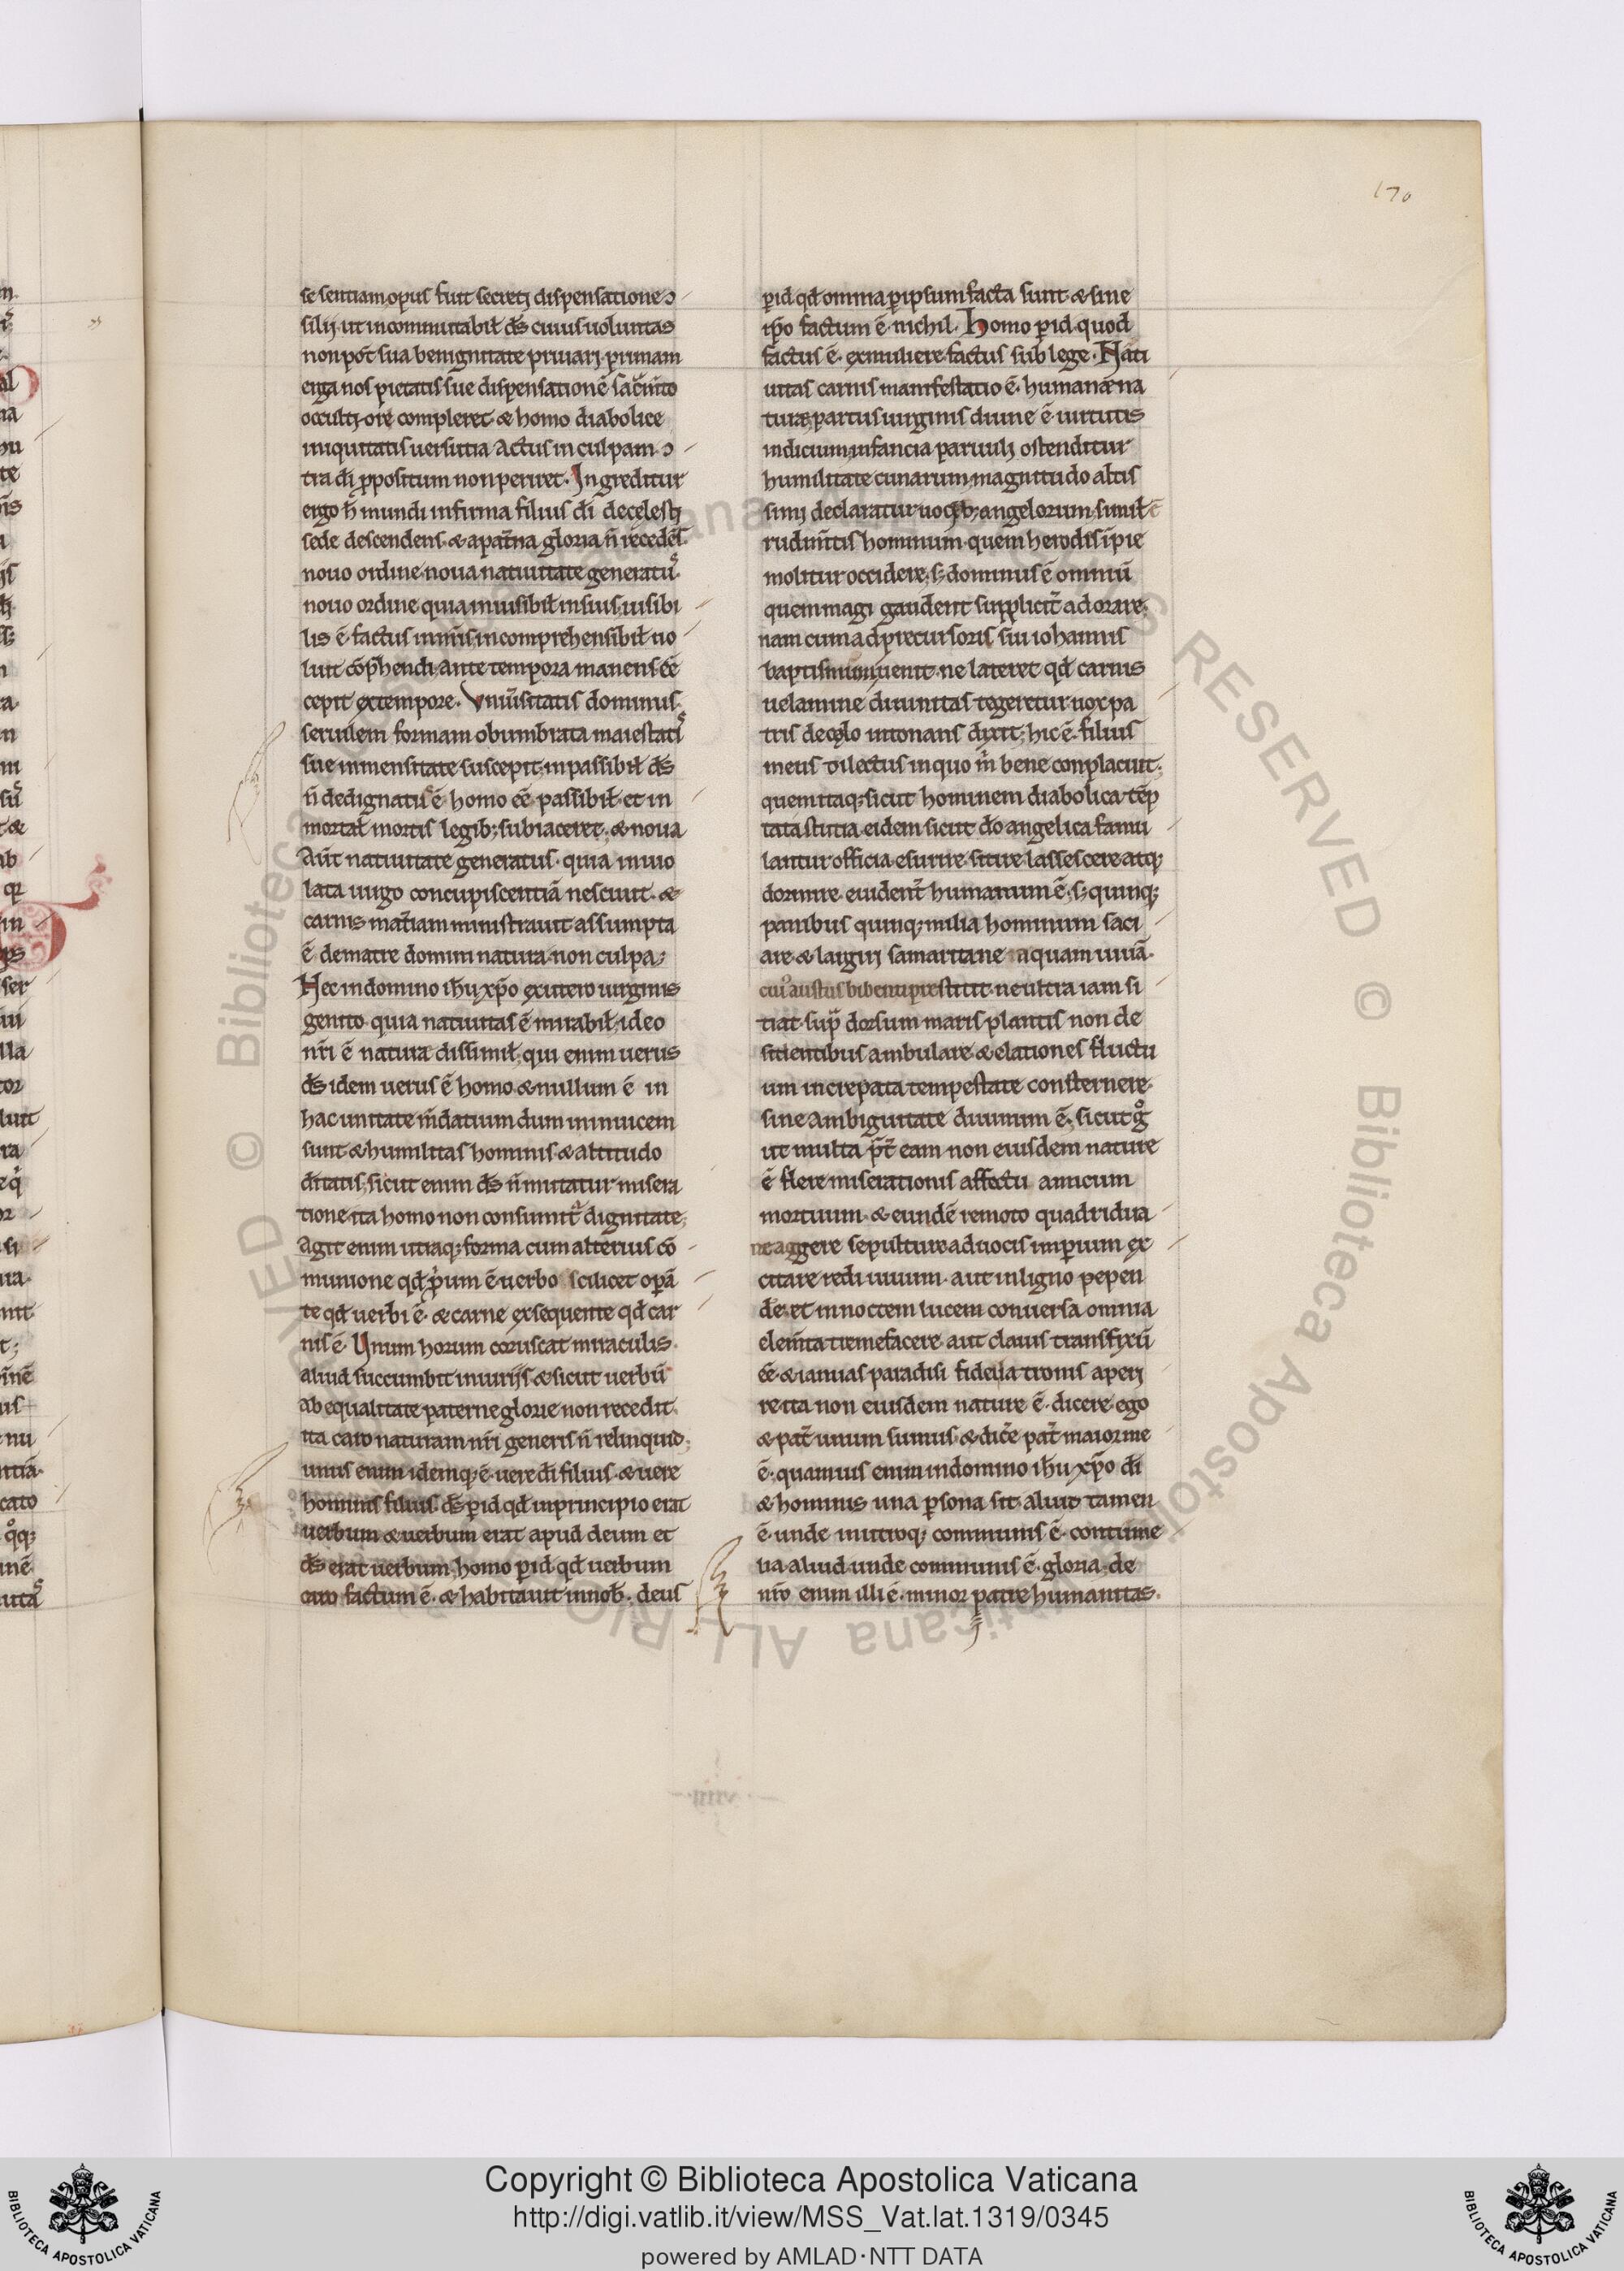 170
se sentiam opus fuit secretj dispensatione ɔ
silij ut incommutabił dš cuius uoluntas
non põt sua benignitate priuarj primam
erga nos pietatis sue dispensationē sac̃mto
occultj orẽ compleret & homo diabolice
iniquitatis uersutia actus in culpam ɔ
tra di ꝓpositum non periret. Ingreditur
ergo h̃ mundi infirma filius di de cęlestj
sede descendens & a pat̃na gloria ñ recedēs
nouo ordine noua natiuitate generatꝰ
nouo ordine quia inuisibił in suis uisibi
lis ē factus in nr̃is incomprehensibił uo
luit cōp̃hendi ante tempora manens ēē
cepit ex tempore. Vniũsitatis dominus
seruilem formam obumbrata maiestatꝭ
sue inmensitate suscepit inpassibił dš
ñ dedignatꝰ ē homo ēē passibił et in
mortał mortis legibꝫ subiacere. & noua
aũt natiuitate generatus quia inuio
lata uirgo concupiscentiā nesciuit &
carnis mat̃iam ministrauit assumpta
ē de matre domini natura non culpa;
Nec in domino ihũ xp̃o ex utero uirginis
genito quia natiuitas ē mirabił, ideo
nr̃i ē natura dissimił, qui enim uerus
dš idem uerus ē homo & nullum ē in
hac unitate m̃datium dum inuicem
sunt & humilitas hominis & altitudo
d̃itatis, sicut enim dš ñ mutatur misera
tione ita homo non consumit̃ dignitate;
Agit enim utraqꝫ forma cum alterius cō
munione qd̃ ꝓp̃um ē uerbo scilicet op̃ā
te qd̃ uerbi ē & carne exsequente qd̃ car
nis ē. Vnum horum coruscat miraculis
aliud succumbit iniurijs & sicut uerbū
ab equalitate paterne glorie non recedit
ita caro naturam nr̃i generis ñ relinquid;
unus enim idemqꝫ ē uere di filius & uere
hominis filius. dš ꝑ id qd̃ in principio erat
uerbum & uerbum erat apud deum et
dš erat uerbum, homo ꝑ id qd̃ uerbum
caro factum ē & habitauit in nob̃. deus
ꝑ id qd̃ omnia ꝑ ipsum facta sunt & sine
ip̃o factum ē nichil. Homo ꝑ id quod
factus ē ex muliere factus sub lege. Nati
uitas carnis manifestatio ē humanæ na
turæ partus uirginis diuine ē uirtutis
indicium infancia paruulj ostenditur
humilitate cunarum magnitudo altis
simj declaratur uocibꝫ angelorum, similł ē
rudim̃tis hominum quem herodis ĩpie
molitur occidere, sꝫ dominus ē omniū
quem magi gaudent supplicit̃ adorare
nam cum ad precursoris sui iohannis
baptismum uenit ne lateret qd̃ carnis
uelamine diuinitas tegeretur uox pa
tris de cęlo intonans dixit, hic ē filius
meus dilectus in quo m̃ bene conplacuit;
quem itaqꝫ sicut hominem diabolica tēp
tat astutia eidem sicut do angelica famu
lantur officia esurire sitire lassescere atqꝫ
dormire euident̃ humanum ē. sꝫ quinqꝫ
panibus quinqꝫ milia hominum saci
are & largirj samaritane aquam uiuā
cuiꝰ austus bibenti prestitit ne ultra iam si
tiat. sup̃ dorsum maris plantis non de
sidentibus ambulare & elationes fluctu
um increpata tempestate consternere
sine ambiguitate diuinum ē. sicut g̊
ut multa p̃t̃ eam non eiusdem nature
ē flere miserationis affectu amicum
mortuum & eundē remoto quadridua
ne aggere sepulture ad uocis imꝑium ex
citare rediuiuum aut in ligno pepen
de: et in noctem lucem conuersa omnia
elem̃ta tremefacere aut clauis transfixū
ēē & ianuas paradisi fidej latronis aperj
re ita non eiusdem nature ē dicere ego
& pat̃ unum sumus & dic̃e pat̃ maior me
ē. quamuis enim in domino ihũ xp̃o di
& hominis una ꝑsona sit aliut tamen
ē unde in utroqꝫ communis ē contume
lia aliud unde communis ē gloria. de
nr̃o enim illi ē minor patre humanitas.
viiii
© Biblioteca Apostolica Vaticana ALL RIGHTS RESERVED
Copyright © Biblioteca Apostolica Vaticana
http://digi.vatlib.it/view/MSS_Vat.lat.1319/0345
powered by AMLAD·NTT DATA
BIBLIOTECA APOSTOLICA VATICANA
BIBLIOTECA APOSTOLICA VATICANA